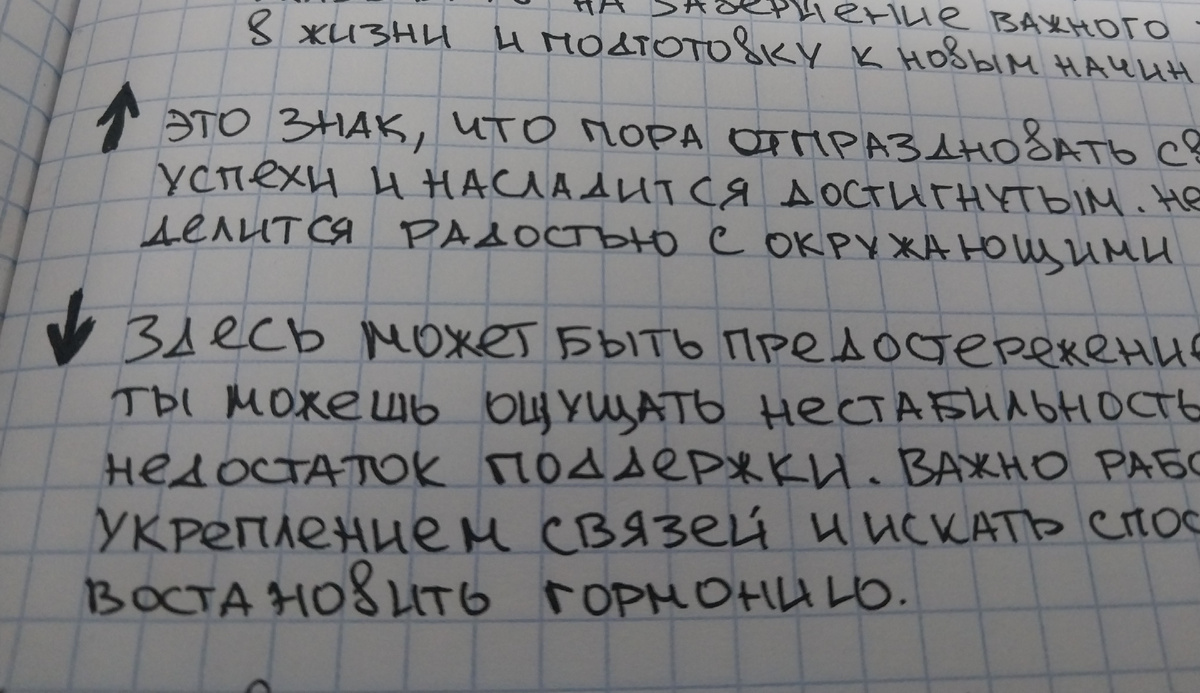 НА ЗАВЕРШЕНИЕ ВАЖНОГО
В ЖИЗНИ И ПОДГОТОВКУ К НОВЫМ НАЧИН
↑ ЭТО ЗНАК, ЧТО ПОРА ОТПРАЗДНОВАТЬ СВ
УСПЕХИ И НАСЛАДИТСЯ ДОСТИГНУТЫМ. НЕ
ДЕЛИТСЯ РАДОСТЬЮ С ОКРУЖАЮЩИМИ
↓ ЗДЕСЬ МОЖЕТ БЫТЬ ПРЕДОСТЕРЕЖЕНИЕ
ТЫ МОЖЕШЬ ОЩУЩАТЬ НЕСТАБИЛЬНОСТЬ
НЕДОСТАТОК ПОДДЕРЖКИ. ВАЖНО РАБО
УКРЕПЛЕНИЕМ СВЯЗЕЙ И ИСКАТЬ СПОС
ВОСТАНОВИТЬ ГОРМОНИЮ.